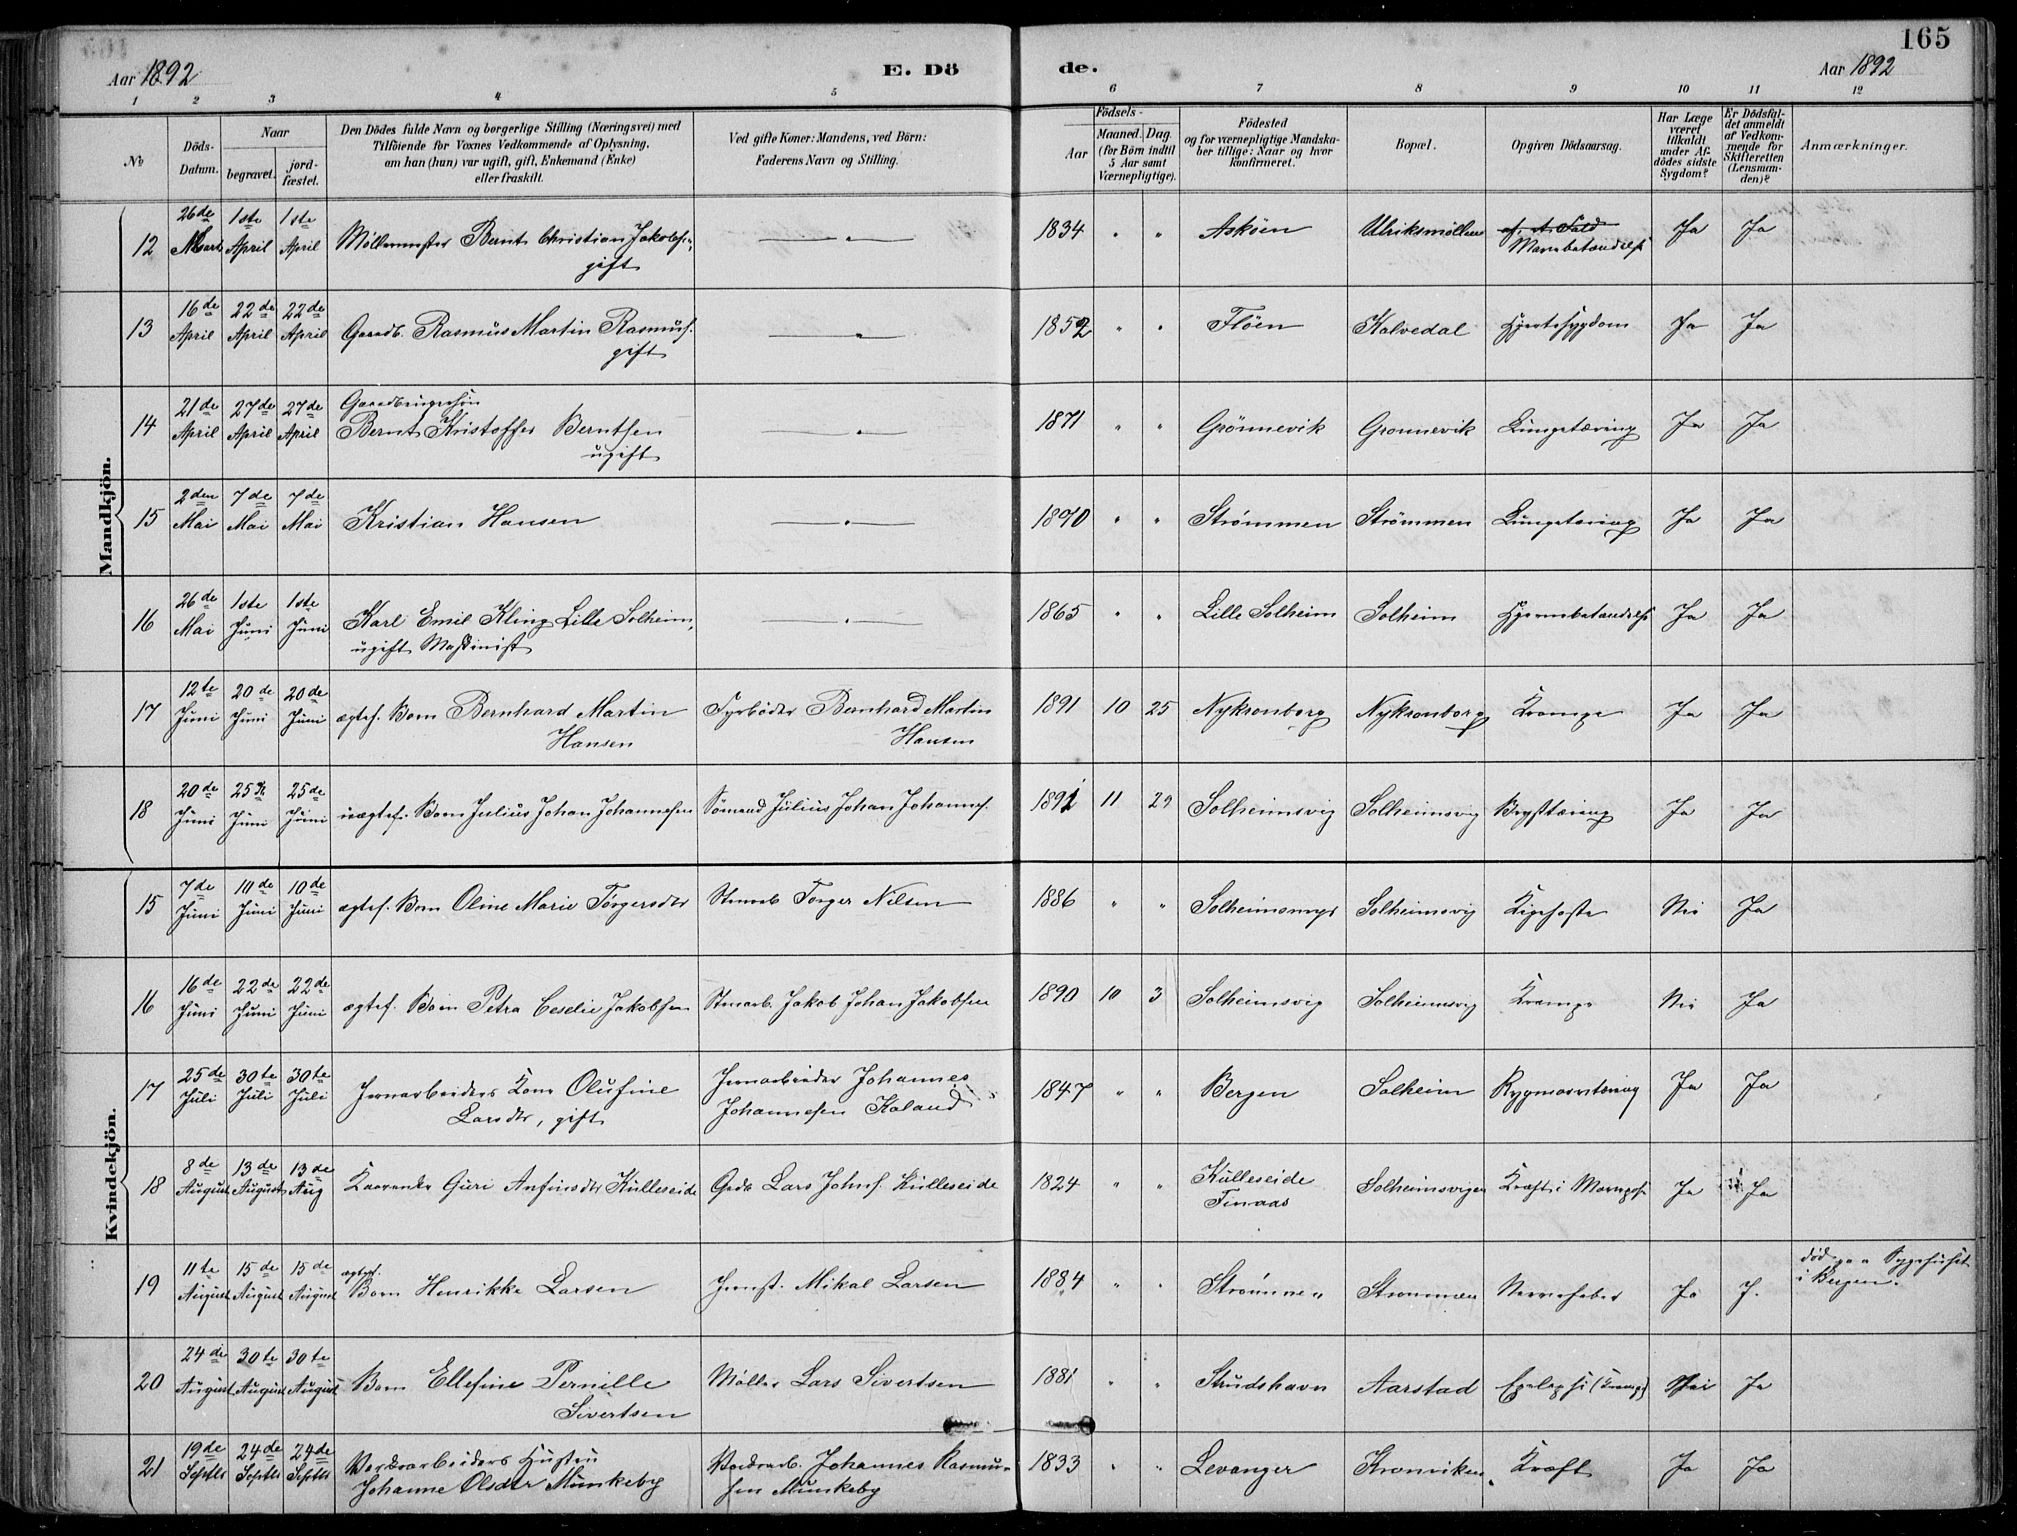 165
Aar 1892
E. Dö
de.
Aar 1892
1 2 3 4 5 6 7 8 9 10 11 12
No
Döds-Datum.
Naar
begravet. jord-fæstet.
Den Dödes fulde Navn og borgerlige Stilling (Næringsvei) med
Tilföiende for Voxnes Vedkommende af Oplysning,
om han (hun) var ugift, gift, Enkemand (Enke)
eller fraskilt.
Ved gifte Koner: Mandens, ved Börn:
Faderens Navn og Stilling.
Födsels-
Aar
Maaned. Dag.
(for Börn indtil
5 Aar samt
Værnepligtige).
Födested
og for værnepligtige Mandska-
ber tillige: Naar og hvor
konfirmeret.
Bopæl.
Opgiven Dödsaarsag.
Har Læge
været
tilkaldt
under Af-
dödes sidste
Sygdom?
Er Dödsfal-
det anmeldt
af Vedkom-
mende for
Skifteretten
(Lensman-
den)?
Anmærkninger.
Mandkjön.
12 26de Marts 1ste April 1ste April Møllermester Bernt Christian Jakobsen, gift " 1834 " " Askøen Ulriksmøllen Mavebetændelse Ja Ja
13 16de April 22de April 22de April Gaardb. Rasmus Martin Rasmus. gift " 1852 " " Fløen Kalvedal Hjertesygdom Ja Ja
14 21de April 27de April 27de April Gaardbrugersøn Bernt Kristoffer Berntsen ugift " 1871 " " Grönnevik Gronnevik Lungetæring Ja Ja
15 2den Mai 7de Mai 7de Mai Kristian Hansen " 1870 " " Strömmen Strömmen Lungetæring Ja Ja
16 26de Mai 1ste Juni 1ste Juni Karl Emil Kling Lille Solheim, ugift Maskinist " 1865 " " Lille Solheim Solheim Hjernebetændelse Ja Ja
17 12te Juni 20de Juni 20de Juni ægtef. Barn Bernhard Martin Hansen Fyrböder Bernhard Martin Hansen 1891 10 25 Nykronborg Nykronborg Krampe Ja Ja
18 20de Juni 25de Juni 25de Juni uægtef. Barn Julius Johan Johannesen Sömand Julius Johan Johannes. 1891 11 29 Solheimsvig Solheimsvig Brysttæring Ja Ja
Kvindekjön.
15 7de Juni 10de Juni 10de Juni ægtef. Barn Oline Marie Törgersdtr Stenarb Torger Nilsen 1886 " " Solheimsvig Solheimsvig Kighoste Nei Ja
16 16de Juni 22de Juni 22de Juni ægtef. Barn Petra Ceselie Jakobsen Stenarb. Jakob Johan Jakobsen 1890 10 3 Solheimsvig Solheimsvig Krampe Nei Ja
17 25de Juli 30te Juli 30te Juli Jernarbeiders Kone Olufine Larsdtr, gift Jernarbeider Johannes Johannesen Kaland 1847 " " Bergen Solheim Rygmarvstæring Ja Ja
18 8de August 13de August 13de Aug Kaarenke Guri Anfinsdtr Külleseide Grdb Lars Johns. Külleseide 1824 " " Külleseide Finaas Solheimsvigen Kræft i Ja Ja
19 11te August 15de August 15de August ægtef. Barn Henrikke Larsen Jernst. Mikal Larsen 1884 " " Strömmen Strommen Nervefeber Ja J. död paa Sygehuset i Bergen.
20 24de August 30te August 30te August Barn Ellefine Pernille Sivertsen Møller Lars Sivertsen 1881 " " Strudshavn Aarstad Epelepsi (Krampe) Nei Ja
21 19de Septbr 24de Septbr 24de Septbr Værksarbeiders Hustru Johanne Olsdtr Munkeby Værksarb. Johannes Rasmussen Munkeby 1833 " " Levanger Kronviken Kræft Ja Ja